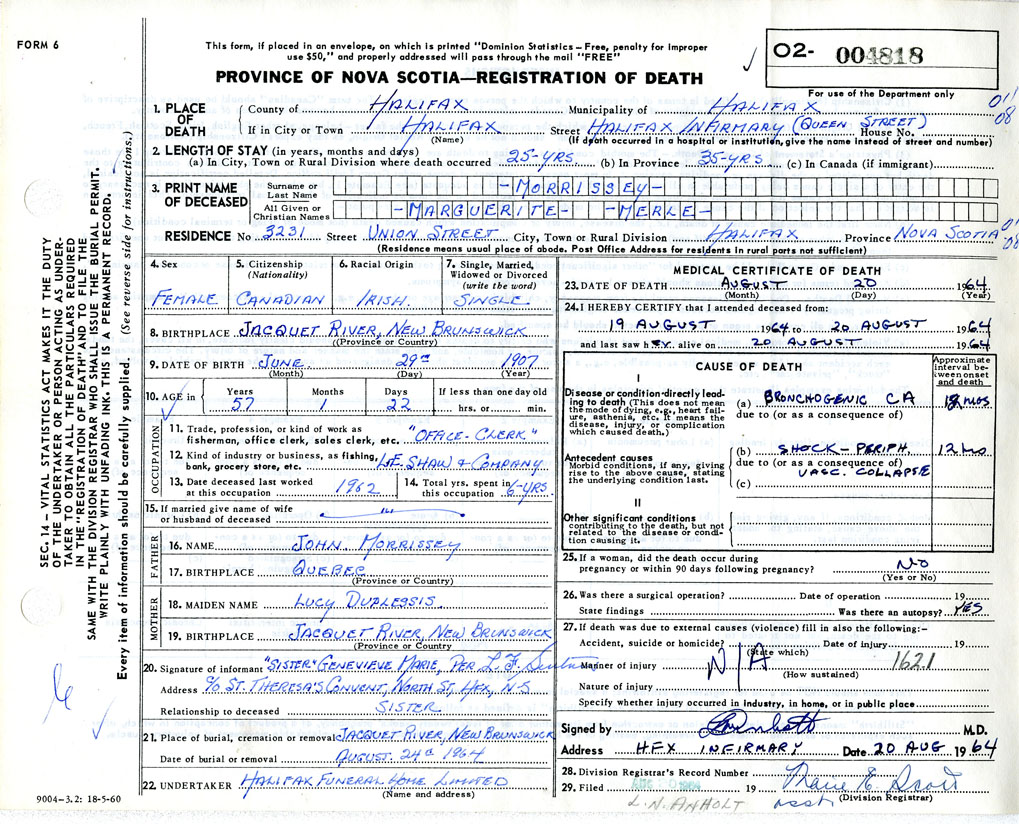 FORM 6
This form, if placed in an envelope, on which is printed "Dominion Statistics – Free, penalty for improper
use $50," and properly addressed will pass through the mail "FREE"
PROVINCE OF NOVA SCOTIA—REGISTRATION OF DEATH
O2- 004818
For use of the Department only
011
08
1. PLACE OF DEATH
County of HALIFAX Municipality of HALIFAX
If in City or Town HALIFAX Street HALIFAX INFIRMARY (QUEEN STREET) House No.
(Name) (If death occurred in a hospital or institution, give the name instead of street and number)
2. LENGTH OF STAY (in years, months and days)
(a) In City, Town or Rural Division where death occurred 25-YRS. (b) In Province 35-YRS (c) In Canada (if immigrant)
3. PRINT NAME OF DECEASED
Surname or Last Name -MORRISSEY-
All Given or Christian Names -MARGUERITE- -MERLE-
RESIDENCE No 3231 Street UNION STREET City, Town or Rural Division HALIFAX Province NOVA SCOTIA
(Residence means usual place of abode. Post Office Address for residents in rural parts not sufficient)
4. Sex
FEMALE
5. Citizenship
(Nationality)
CANADIAN
6. Racial Origin
IRISH.
7. Single, Married,
Widowed or Divorced
(write the word)
SINGLE.
8. BIRTHPLACE JACQUET RIVER, NEW BRUNSWICK
(Province or Country)
9. DATE OF BIRTH JUNE 29th 1907
(Month) (Day) (Year)
10. AGE in
Years Months Days If less than one day old
57 1 22 hrs. or min.
OCCUPATION
11. Trade, profession, or kind of work as
fisherman, office clerk, sales clerk, etc. "OFFICE-CLERK"
12. Kind of industry or business, as fishing,
bank, grocery store, etc. L.E. SHAW & COMPANY
13. Date deceased last worked
at this occupation 1962
14. Total yrs. spent in
this occupation 6-YRS.
15. If married give name of wife
or husband of deceased
FATHER
16. NAME JOHN MORRISSEY
17. BIRTHPLACE QUEBEC
(Province or Country)
MOTHER
18. MAIDEN NAME LUCY DUPLESSIS.
19. BIRTHPLACE JACQUET RIVER, NEW BRUNSWICK
(Province or Country)
20. Signature of informant "SISTER" GENEVIEVE MARIE, PER L.F.
Address c/o ST. THERESA'S CONVENT, NORTH ST. HFX, N.S
Relationship to deceased SISTER
21. Place of burial, cremation or removal JACQUET RIVER, NEW BRUNSWICK
Date of burial or removal AUGUST. 24th 1964
22. UNDERTAKER HALIFAX FUNERAL HOME LIMITED
(Name and address)
9004-3.2: 18-5-60
MEDICAL CERTIFICATE OF DEATH
23. DATE OF DEATH AUGUST 20 1964
(Month) (Day) (Year)
24. I HEREBY CERTIFY that I attended deceased from:
19 AUGUST 1964 to 20 AUGUST 1964
and last saw her alive on 20 AUGUST 1964
CAUSE OF DEATH
Approximate
interval between onset
and death
I
Disease or condition directly leading to death (This does not mean
the mode of dying, e.g., heart failure, asthenia, etc. It means the
disease, injury, or complication
which caused death.)
(a) BRONCHOGENIC CA 18 mos
due to (or as a consequence of)
Antecedent causes
Morbid conditions, if any, giving
rise to the above cause, stating
the underlying condition last.
(b) SHOCK - PERIPH. 12 hrs.
due to (or as a consequence of) VASC. COLLAPSE
(c)
II
Other significant conditions
contributing to the death, but not
related to the disease or condition causing it.
25. If a woman, did the death occur during
pregnancy or within 90 days following pregnancy? NO
(Yes or No)
26. Was there a surgical operation? Date of operation 19
State findings Was there an autopsy? YES
27. If death was due to external causes (violence) fill in also the following:–
Accident, suicide or homicide? Date of injury 19
(State which)
Manner of injury N/A 1621
(How sustained)
Nature of injury
Specify whether injury occurred in industry, in home, or in public place
Signed by M.D.
Address HFX INFIRMARY Date 20 AUG 1964
28. Division Registrar's Record Number
29. Filed 19 Marie E. Scott
asst. (Division Registrar)
L.N. ANHOLT
SEC. 14 – VITAL STATISTICS ACT MAKES IT THE DUTY
OF THE UNDERTAKER OR PERSON ACTING AS UNDERTAKER TO OBTAIN ALL THE PARTICULARS REQUIRED
IN THE "REGISTRATION OF DEATH" AND TO FILE THE
SAME WITH THE DIVISION REGISTRAR WHO SHALL ISSUE THE BURIAL PERMIT.
WRITE PLAINLY WITH UNFADING INK. THIS IS A PERMANENT RECORD.
Every item of information should be carefully supplied. (See reverse side for instructions.)